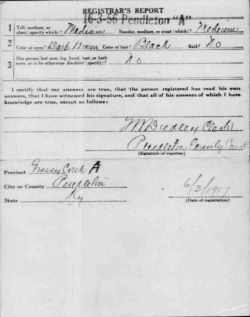 REGISTRAR'S REPORT
16-3-56 Pendleton "A"
1 Tall, medium, or short (specify which)? Medium Slender, medium, or stout (which)? Medium
2 Color of eyes? Dark Brown Color of hair? Black Bald? No
3 Has person lost arm, leg, hand, foot, or both eyes, or is he otherwise disabled (specify)? No
I certify that my answers are true, that the person registered has read his own answers, that I have witnessed his signature, and that all of his answers of which I have knowledge are true, except as follows:
Dudley (Clerk)
Pendleton County Court
(Signature of registrar)
Precinct Grassy Creek A
City or County Pendleton
State Ky
6/5/1917
(Date of registration)